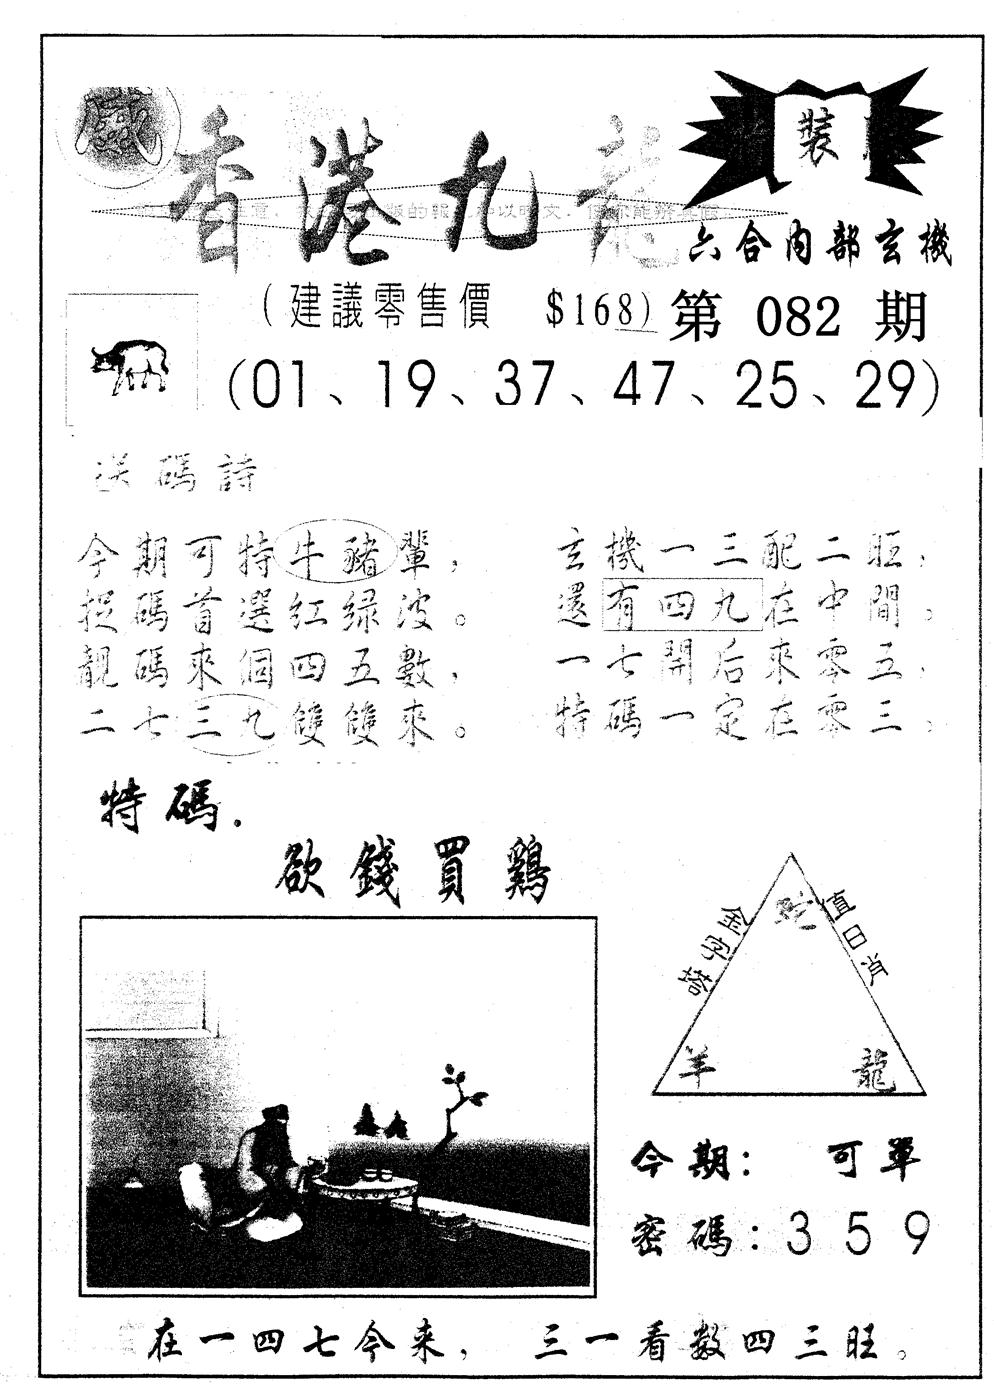 裝
香港九龍
六合內部玄機
(建議零售價 $168)
第 082 期
(01、19、37、47、25、29)
送碼詩
今期可特牛豬輩,
捉碼首選紅绿波。
靚碼來個四五數,
二七三九雙雙來。
玄機一三配二旺,
還有四九在中間。
一七開后來零五,
特碼一定在零三。
特碼.
欲錢買鷄
金字塔
值日肖
蛇
羊
龍
今期: 可單
密碼:359
在一四七今来, 三一看数四三旺。